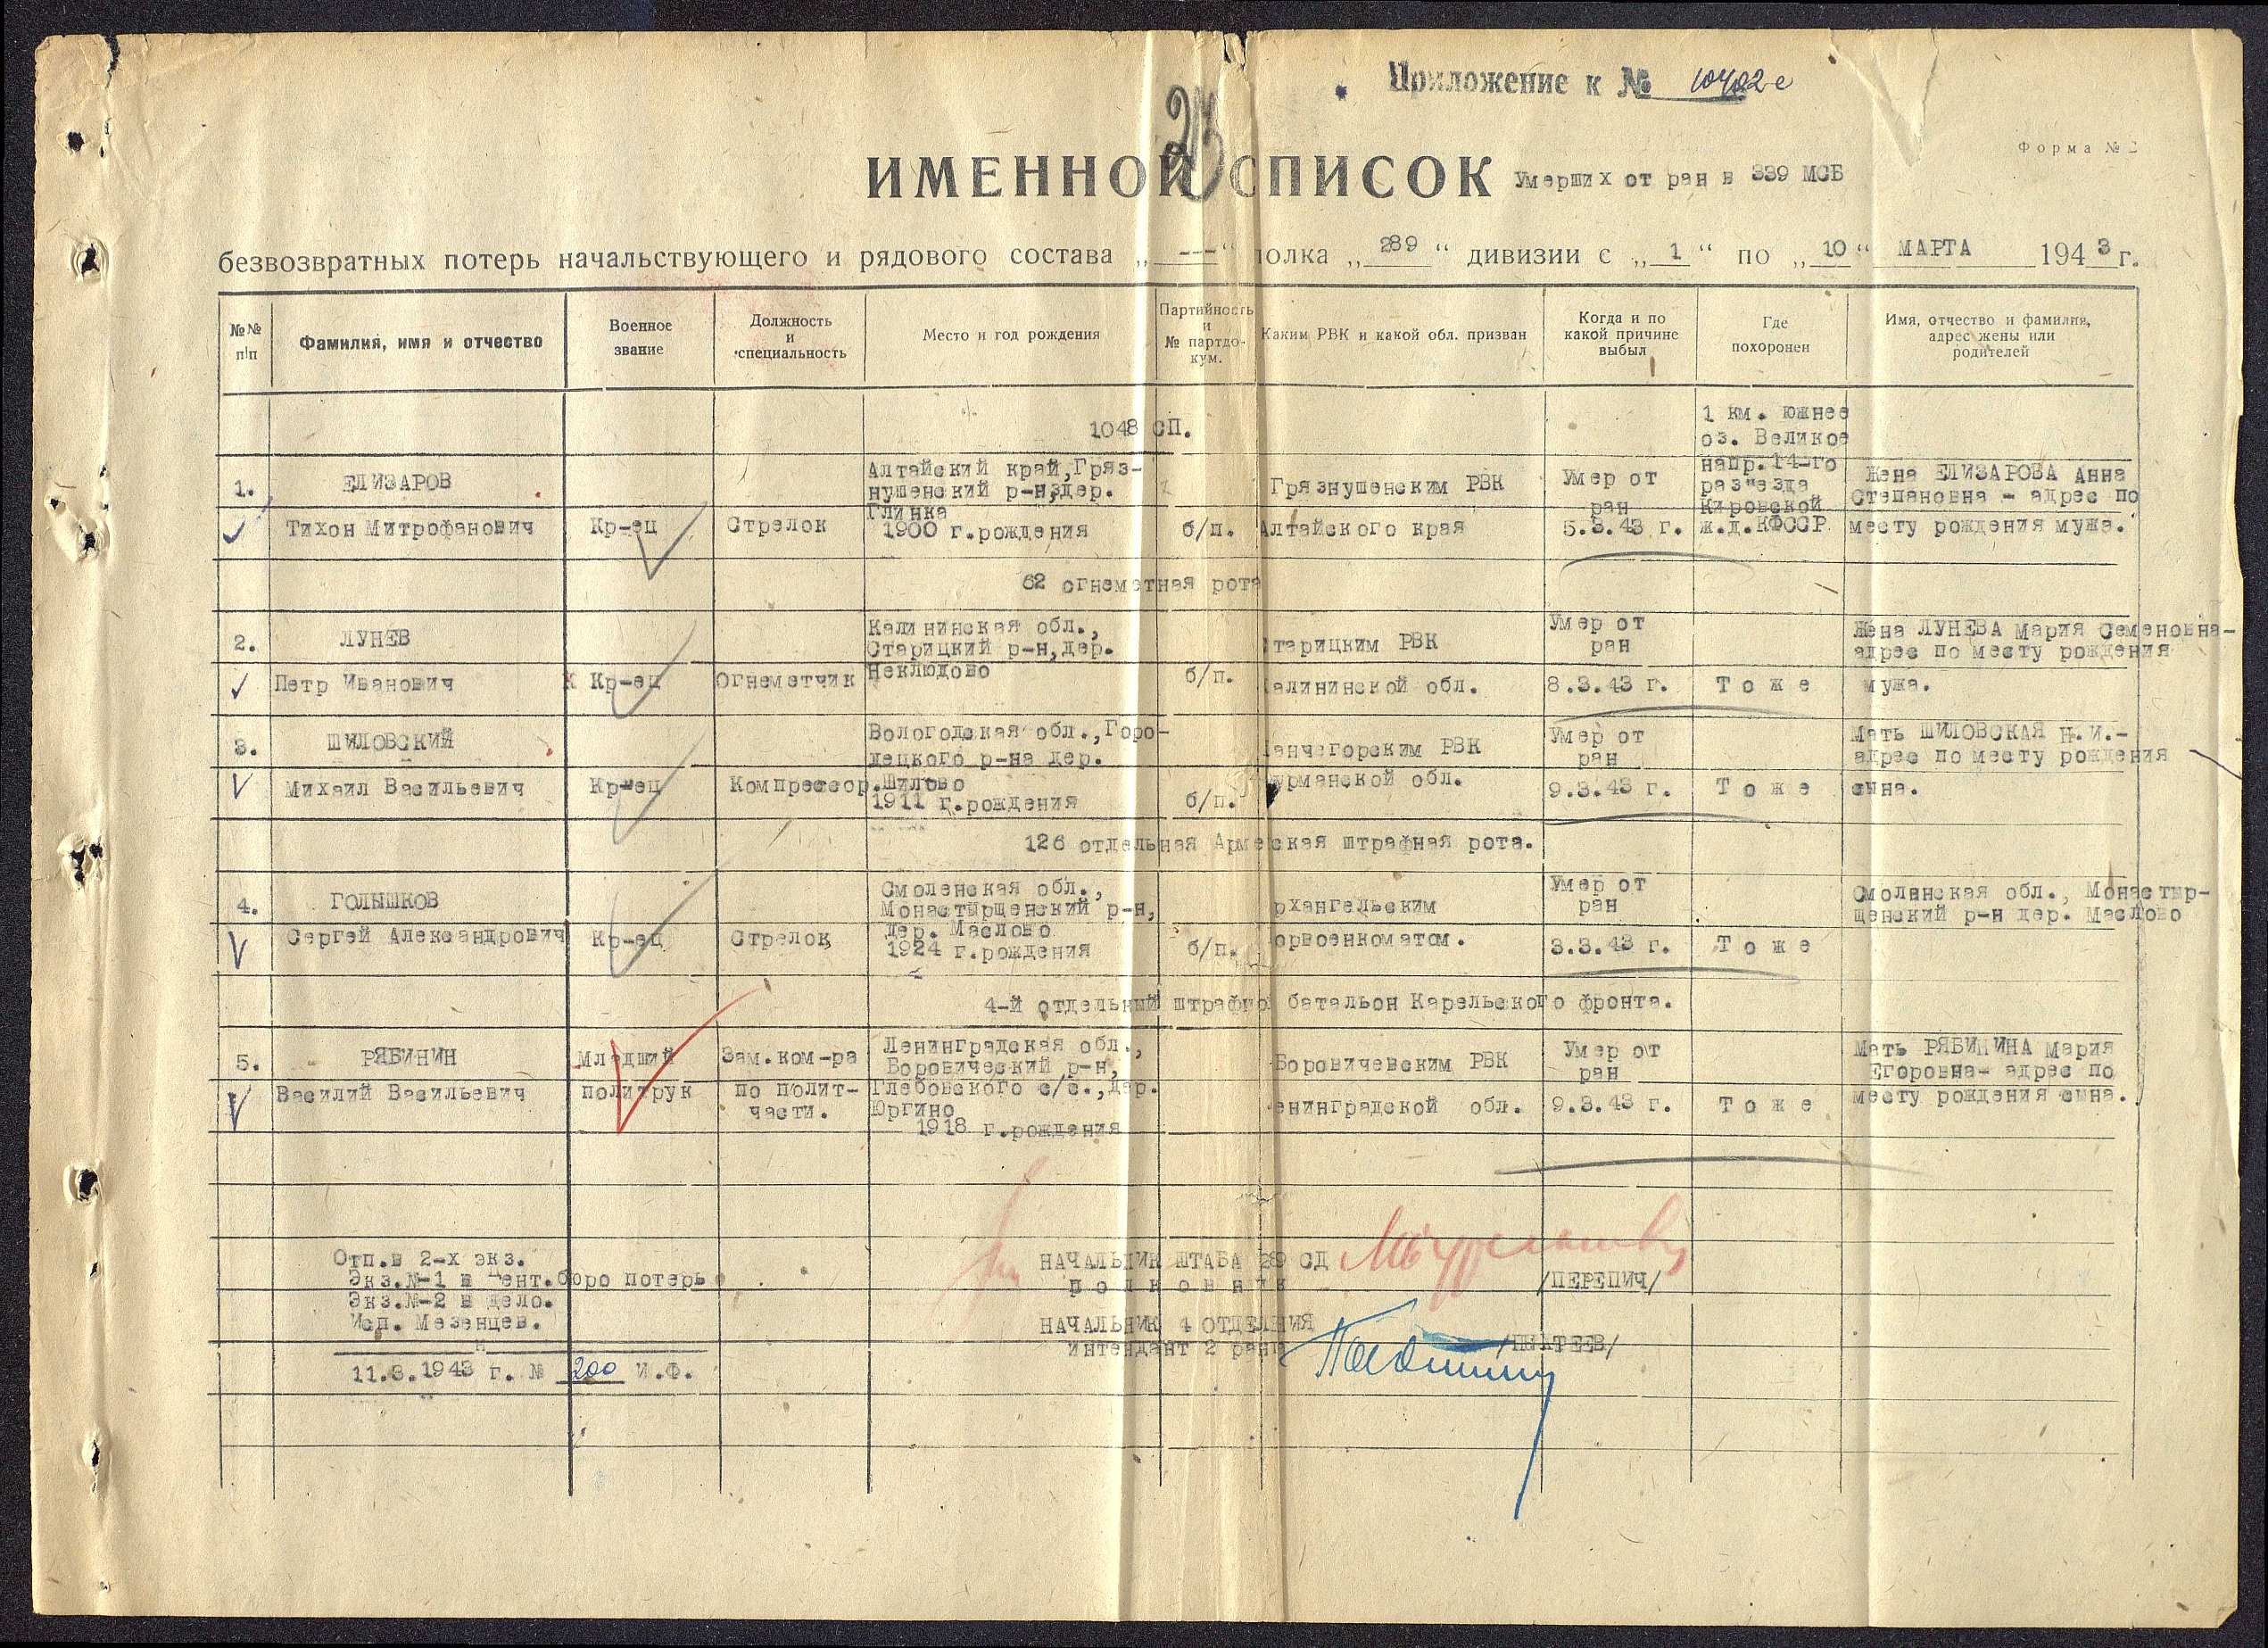 Приложение к № 10402с
23
Форма № 2
ИМЕННОЙ СПИСОК Умерших от ран в 339 МСБ
безвозвратных потерь начальствующего и рядового состава „ --- “ полка „ 289 “ дивизии с „ 1 “ по „ 10 “ МАРТА 1943 г.
№№ п/п
Фамилия, имя и отчество
Военное звание
Должность и специальность
Место и год рождения
Партийность и № партдокум.
Каким РВК и какой обл. призван
Когда и по какой причине выбыл
Где похоронен
Имя, отчество и фамилия, адрес жены или родителей
1048 СП.
1.
ЕЛИЗАРОВ
Тихон Митрофанович
Кр-ец
Стрелок
Алтайский край, Гряз-
нушенский р-н, дер.
Глинка
1900 г.рождения
б/п.
Грязнушенским РВК
Алтайского края
Умер от
ран
5.3.43 г.
1 км. южнее
оз. Великое
напр. 14-го
раз"езда
Кировской
ж.д. КФССР
Жена ЕЛИЗАРОВА Анна
Степановна - адрес по
месту рождения мужа.
62 огнеметная рота
2.
ЛУНЕВ
Петр Иванович
Кр-ец
Огнеметчик
Калининская обл.,
Старицкий р-н, дер.
Неклюдово
б/п.
тарицким РВК
алининской обл.
Умер от
ран
8.3.43 г.
Т о ж е
Жена ЛУНЕВА Мария Семеновна-
адрес по месту рождения
мужа.
3.
ШИЛОВСКИЙ
Михаил Васильевич
Кр-ец
Компрессор.
Вологодская обл., Горо-
децкого р-на дер.
Шилово
1911 г.рождения
б/п.
анчегорским РВК
урманской обл.
Умер от
ран
9.3.43 г.
Т о ж е
Мать ШИЛОВСКАЯ Н.И.-
адрес по месту рождения
сына.
126 отдельная Армейская штрафная рота.
4.
ГОЛЫШКОВ
Сергей Александрович
Кр-ец
Стрелок
Смоленская обл.,
Монастырщенский р-н,
дер. Маслово
1924 г.рождения
б/п.
рхангельским
орвоенкоматом.
Умер от
ран
3.3.43 г.
Т о ж е
Смоленская обл., Монастыр-
щенский р-н дер. Маслово
4-й отдельный штрафной батальон Карельского фронта.
5.
РЯБИНИН
Василий Васильевич
Младший
политрук
Зам.ком-ра
по полит-
части.
Ленинградская обл.,
Боровический р-н,
Глебовского с/с., дер.
Юргино
1918 г.рождения
Боровичевским РВК
енинградской обл.
Умер от
ран
9.3.43 г.
Т о ж е
Мать РЯБИНИНА Мария
Егоровна- адрес по
месту рождения сына.
Отп.в 2-х экз.
Экз.№-1 в Цент.бюро потерь
Экз.№-2 в дело.
Исп. Мезенцев.
11.3.1943 г. № 200 И.Ф.
НАЧАЛЬНИК ШТАБА 289 СД
п о л к о в н и к
/ПЕРЕПИЧ/
НАЧАЛЬНИК 4 ОТДЕЛЕНИЯ
интендант 2 ранга